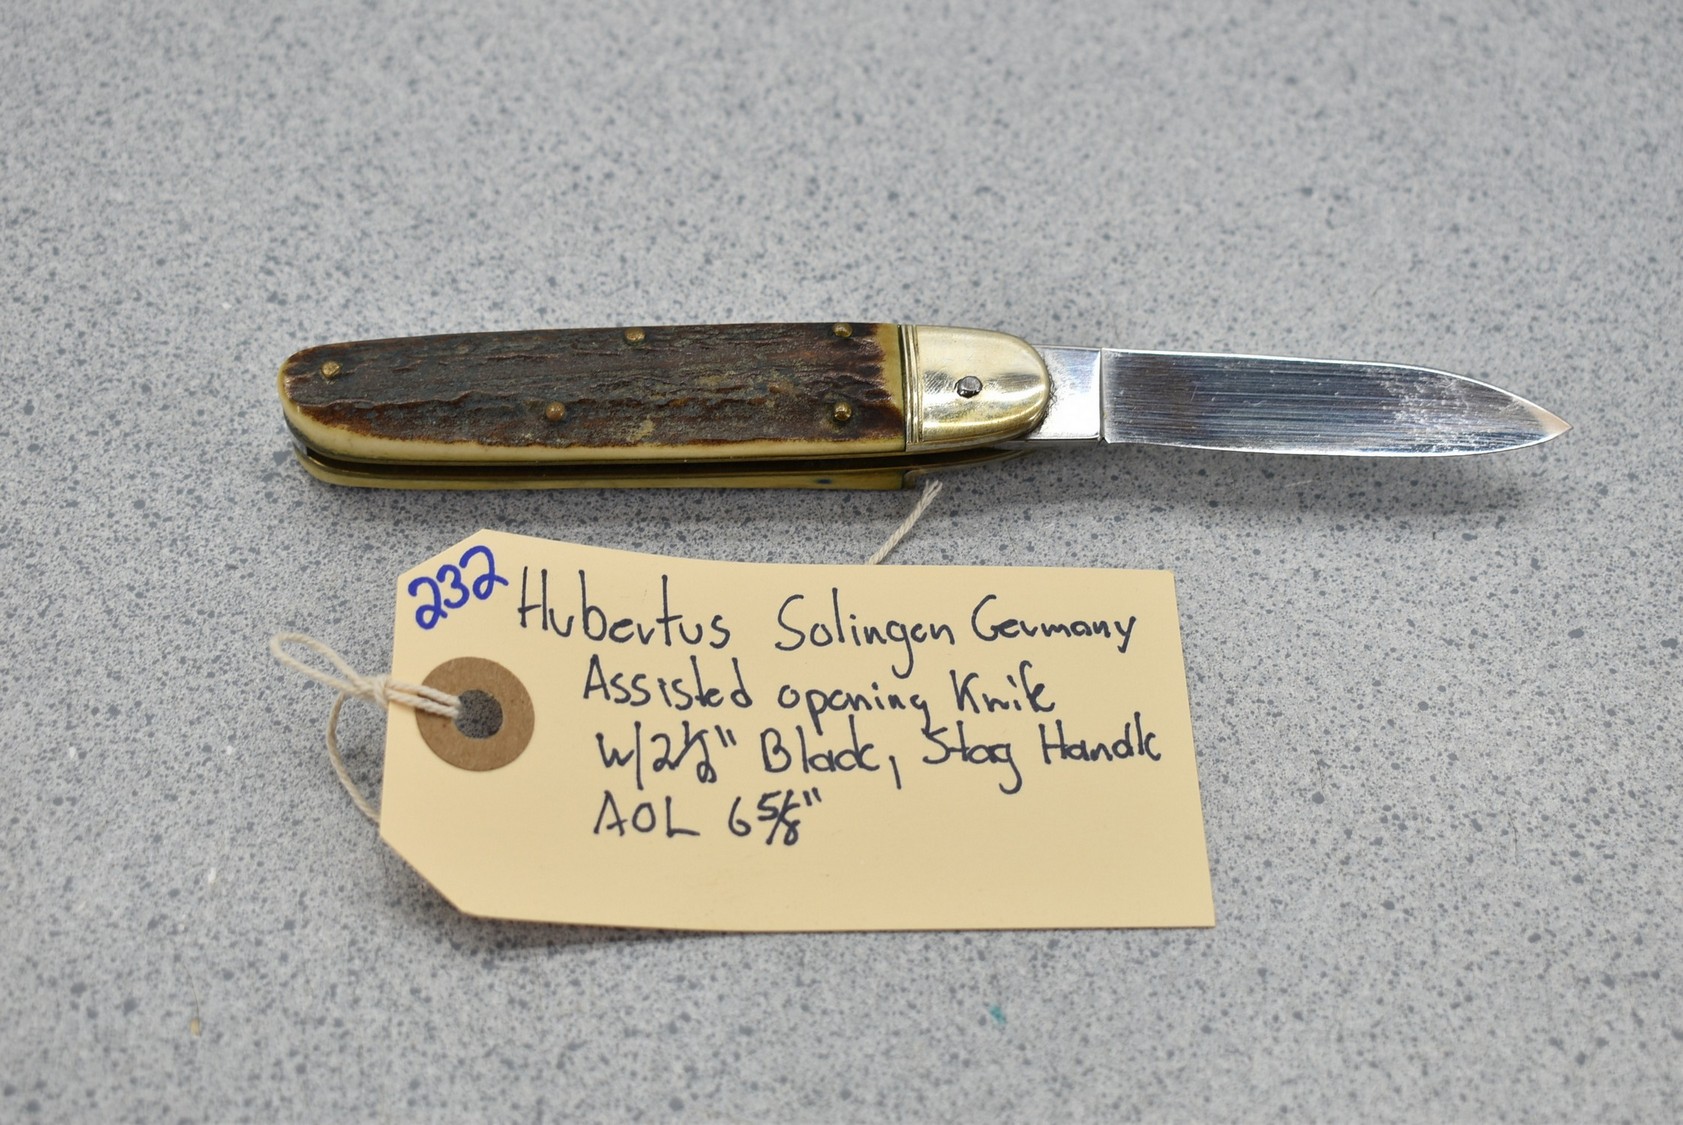 232
Hubertus Solingen Germany
Assisted opening Knife
w/2 1/2" Blade, Stag Handle
AOL 6 5/8"